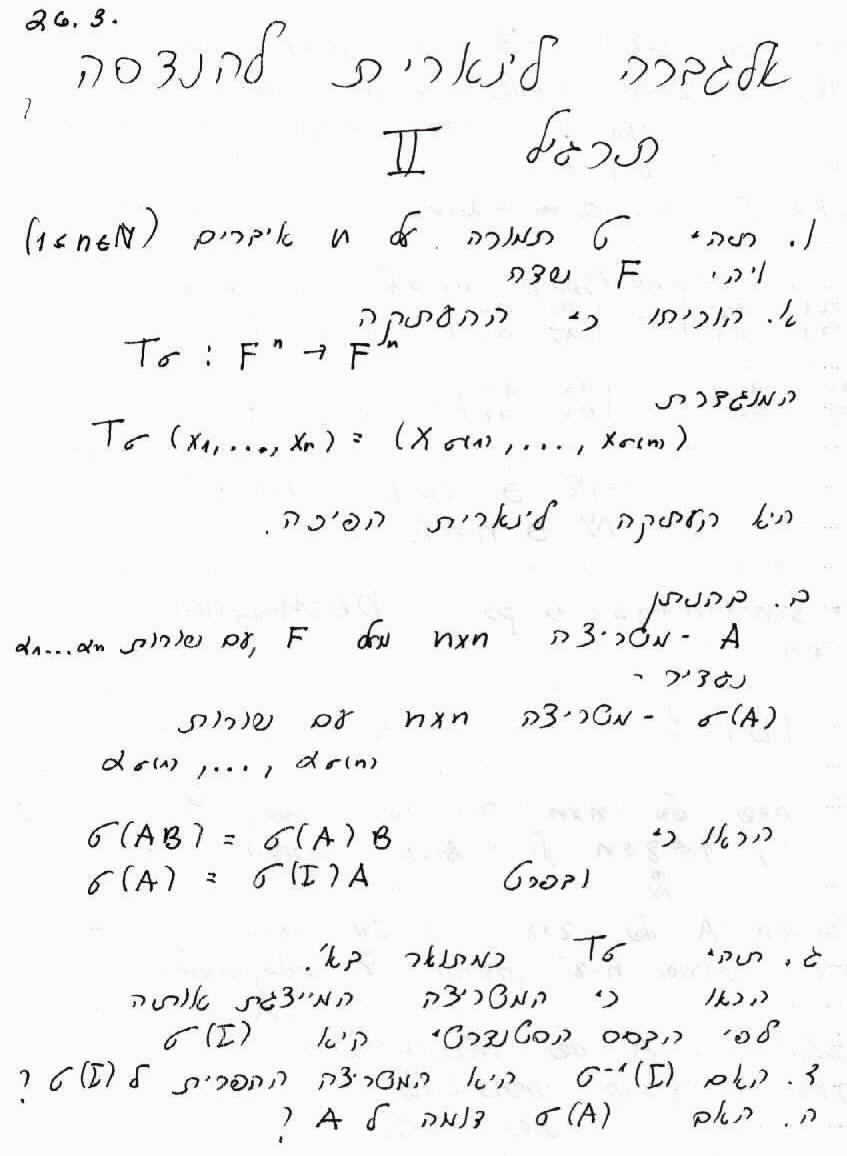 26.3.
אלגברה לינארית להנדסה
תרגיל II
1. תהי σ תמורה על n איברים (1≤n∈ℕ)
ויהי F שדה
א. הוכיחו כי ההעתקה
Tσ : Fⁿ → Fⁿ
המוגדרת
Tσ (x₁,...,xₙ) = (x_σ(1),...,x_σ(n))
היא העתקה לינארית הפיכה.
ב. בהנתן
A - מטריצה nxn מעל F, עם שורות α₁...αₙ
נגדיר -
σ(A) - מטריצה nxn עם שורות
α_σ(1),..., α_σ(n)
הראו כי σ(AB) = σ(A)B
ובפרט σ(A) = σ(I)A
ג. תהי Tσ כמתואר בא'.
הראו כי המטריצה המייצגת אותה
לפי הבסיס הסטנדרטי היא σ(I)
ד. האם σ⁻¹(I) היא המטריצה ההפכית ל σ(I)?
ה. האם σ(A) דומה ל A?